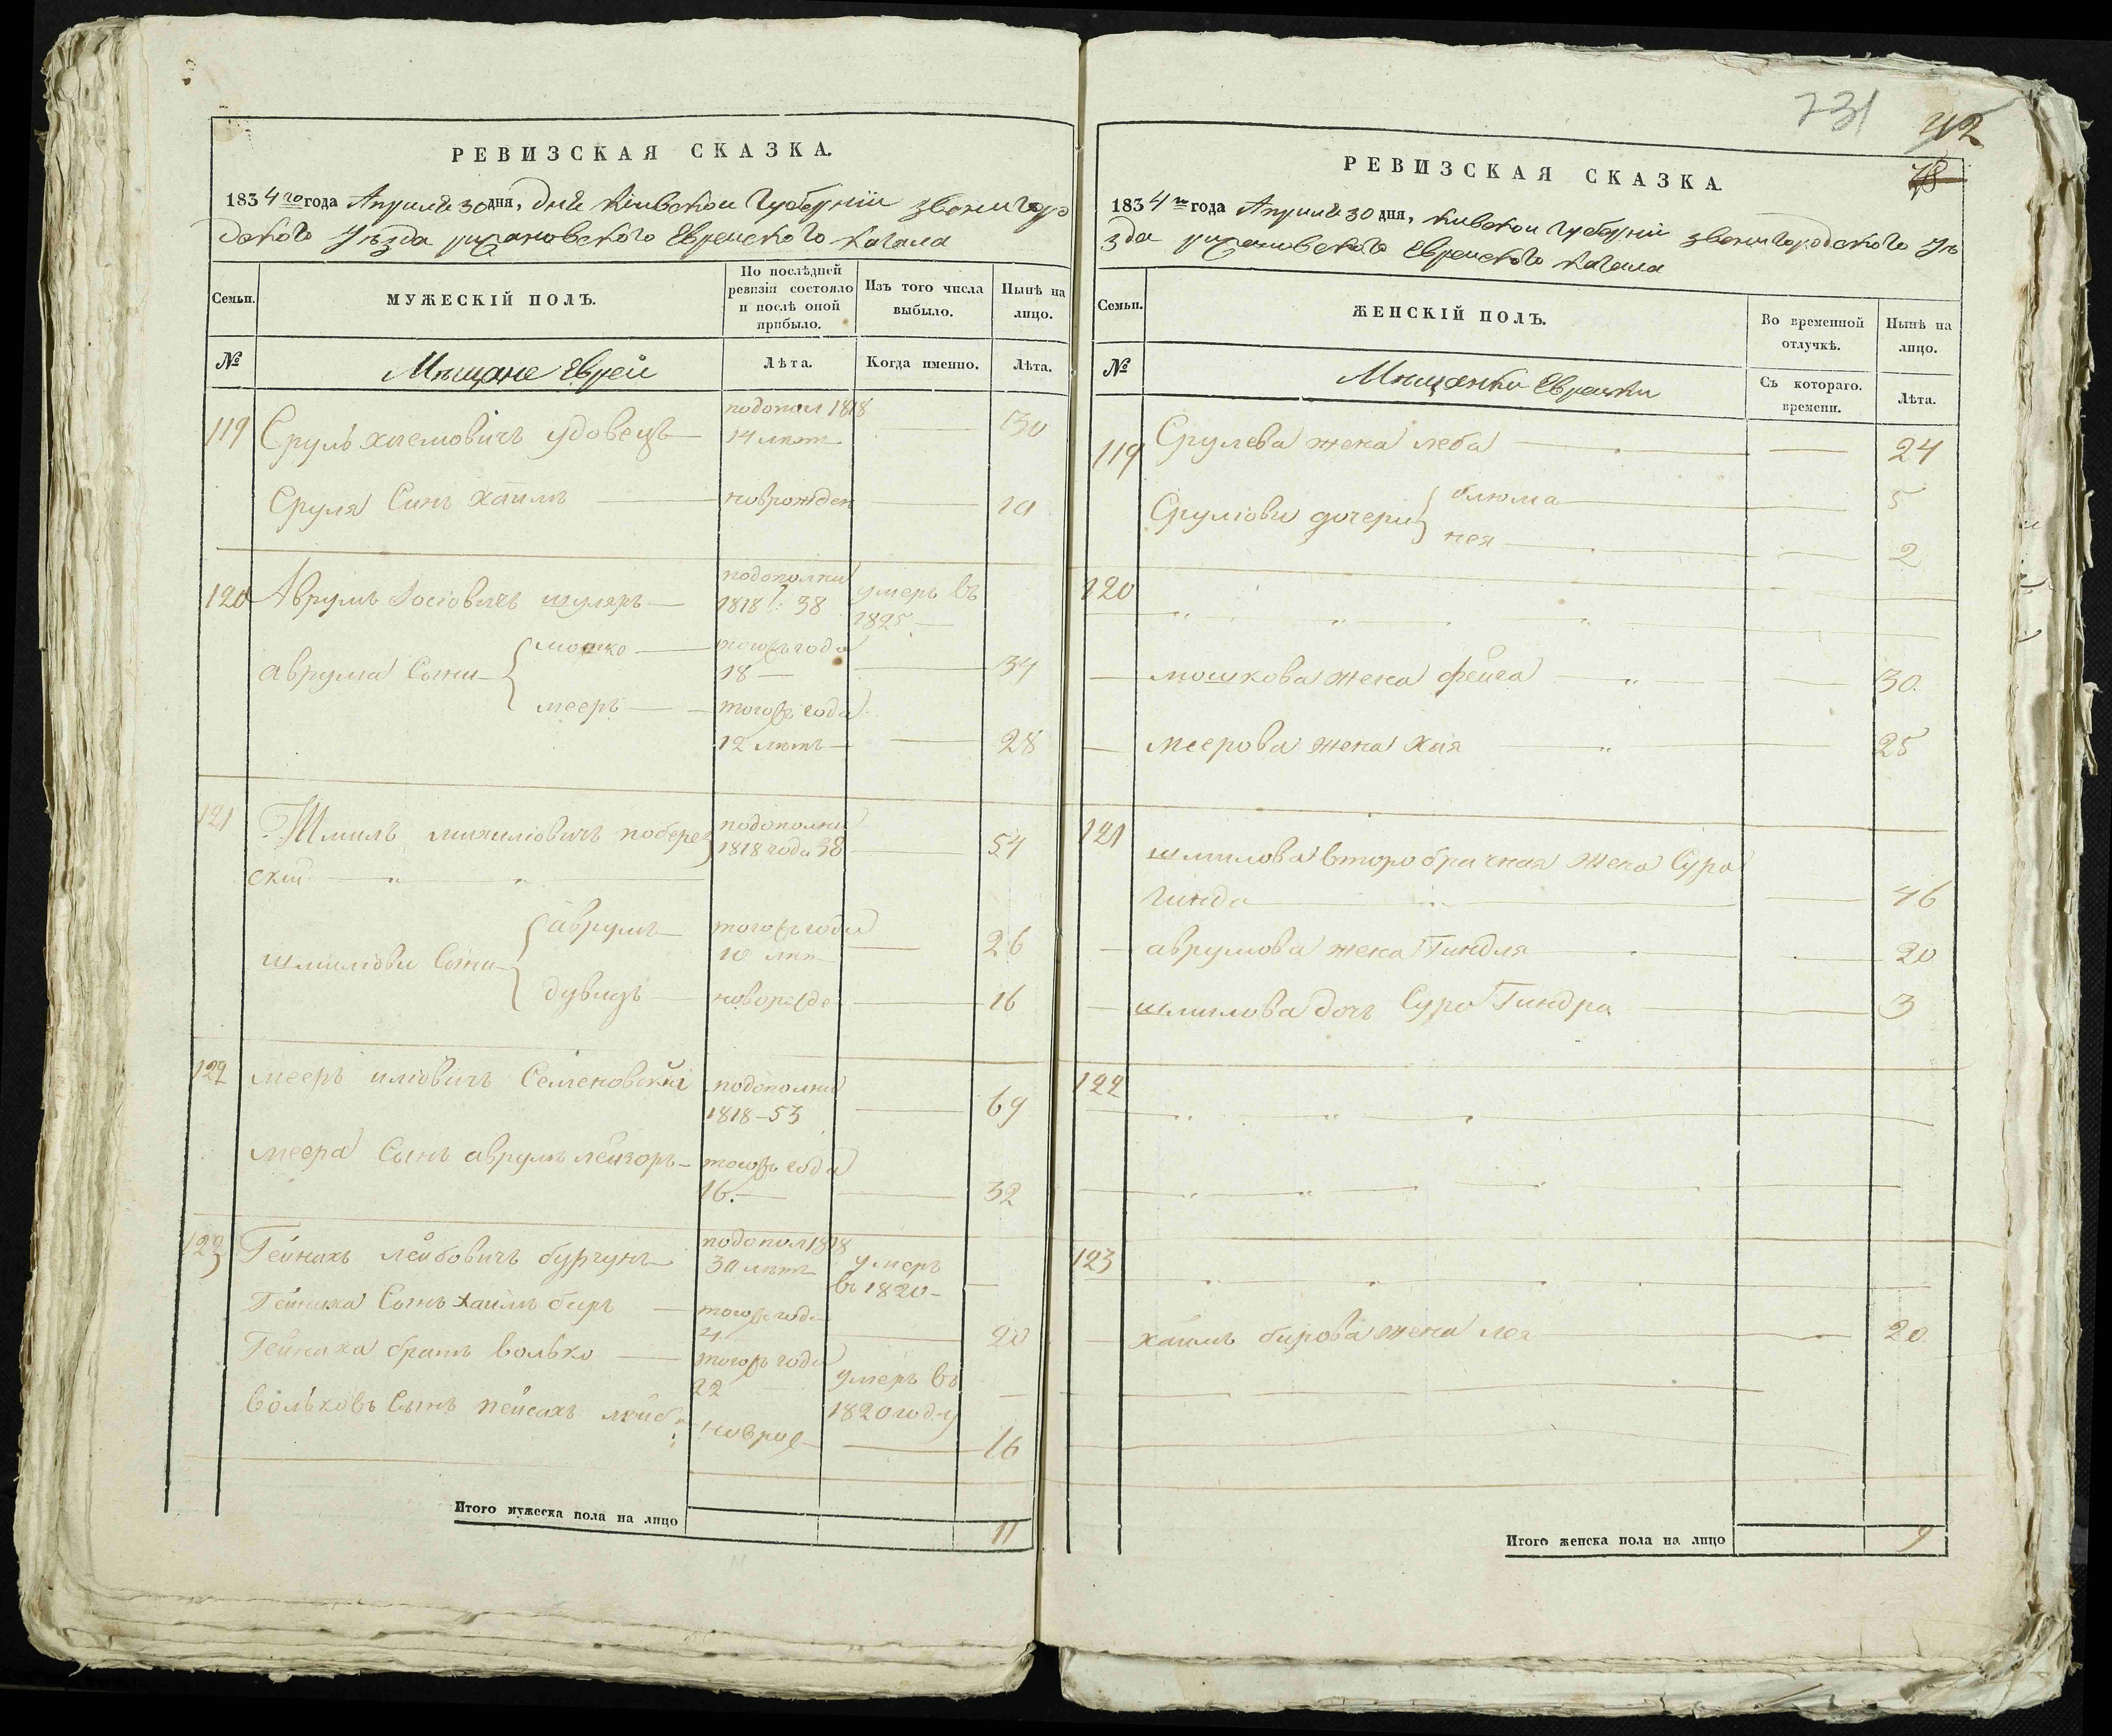 731
42
78
РЕВИЗСКАЯ СКАЗКА.
1834го года Априля 30 дня, дня Кіевской Губерніи звенигоро
дского уѣзда рижановского Еврейского кагала
Семьи.
МУЖЕСКІЙ ПОЛЪ.
По послѣдней ревизіи состояло и послѣ оной прибыло.
Изъ того числа выбыло.
Нынѣ на лицо.
№
Мѣщане Евреи
Лѣта.
Когда именно.
Лѣта.
119 Сруль хаемовичъ удовецъ подопол 1818 14 лѣт 30
Сруля Синъ хаимъ новрожден 10
120 Аврумъ Іосіовичъ шуляръ подополни 1818 г: 38 умеръ въ 1825
аврума Сыни мошко того года 18 34
мееръ того года
12 лѣтъ 28
121 Шмиль михиліовичъ поберез подополни 1818 года 38 54
ский
шмиліови Сыни аврумъ того года 10 лѣт 26
дувидъ новорожде 16
122 мееръ иліовичъ Семеновскій подополни 1818-53 69
меера Сынъ аврумъ лейзоръ того года 16. 32
123 Гейнахъ лейбовичъ бургунъ подопол 1818 30 лѣтъ умеръ въ 1820
Гейнаха Сынъ хаимъ беръ того года 4 20
Гейнаха братъ волько того года 22 умеръ въ 1820 году
вольковъ Сынъ пейсахъ лейб новрож 16
Итого мужеска пола на лицо 11
РЕВИЗСКАЯ СКАЗКА.
1834го года Априля 30 дня, Кивской губерніи звенигородского уѣ
зда рижановского Еврейского кагала
Семьи.
ЖЕНСКІЙ ПОЛЪ.
Во временной отлучкѣ.
Нынѣ на лицо.
№
Мѣщанки Еврейки
Съ котораго. времени.
Лѣта.
119 Срулева жена леба 24
Сруліови дочери блюма 5
нея 2
120
мошкова жена фейга 30.
меерова жена хая 25
121 шмилова второбрачная жена Сура
гинда 46
аврумова жена Гиндля 20
шмилова дочъ Сура Гиндра 3
122
123
хаимъ бирова жена лея 20.
Итого женска пола на лицо 9